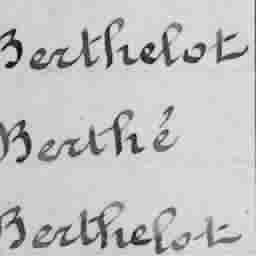 Berthelot
Berthé
Berthelot